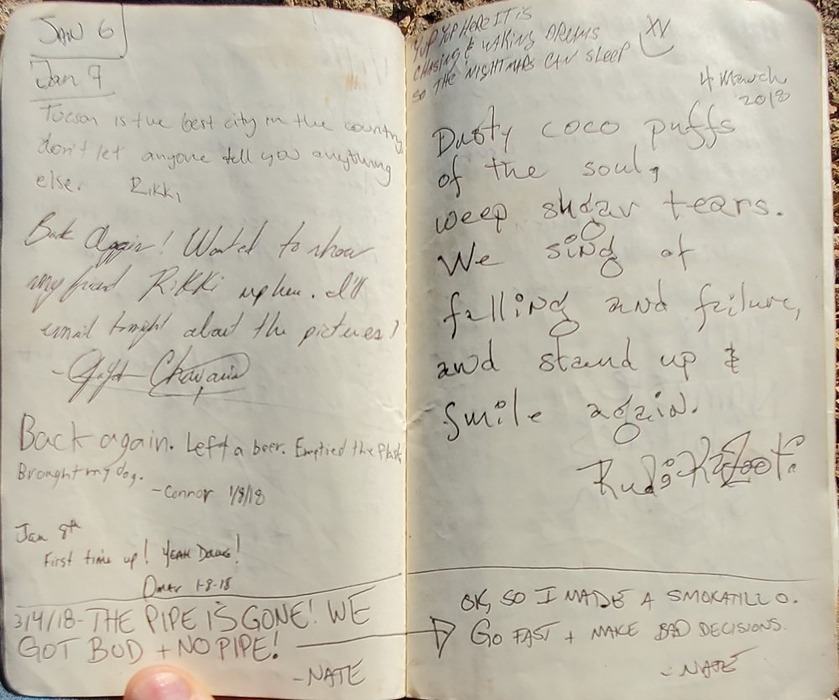 JAN 6
Jan 9
Tucson is the best city in the country
don't let anyone tell you anything
else. Rikki
Back Again! Wanted to show
my friend Rikki up here. I'll
email tonight about the pictures!
Back again. Left a beer. Emptied the flask
Brought my dog.
-Connor 1/8/18
Jan 8th
First time up! YEAH DAWG!
Omar 1-8-18
3/4/18-THE PIPE IS GONE! WE
GOT BUD + NO PIPE!
-NATE
YUP YUP HERE IT IS
CHASING & WAKING DREAMS
SO THE NIGHTMARES CAN SLEEP
XV
4 March
2018
Dusty coco puffs
of the soul,
weep sugar tears.
We sing of
falling and failure,
and stand up &
smile again.
OK, SO I MADE A SMOKATILLO.
GO FAST + MAKE BAD DECISIONS.
-NATE